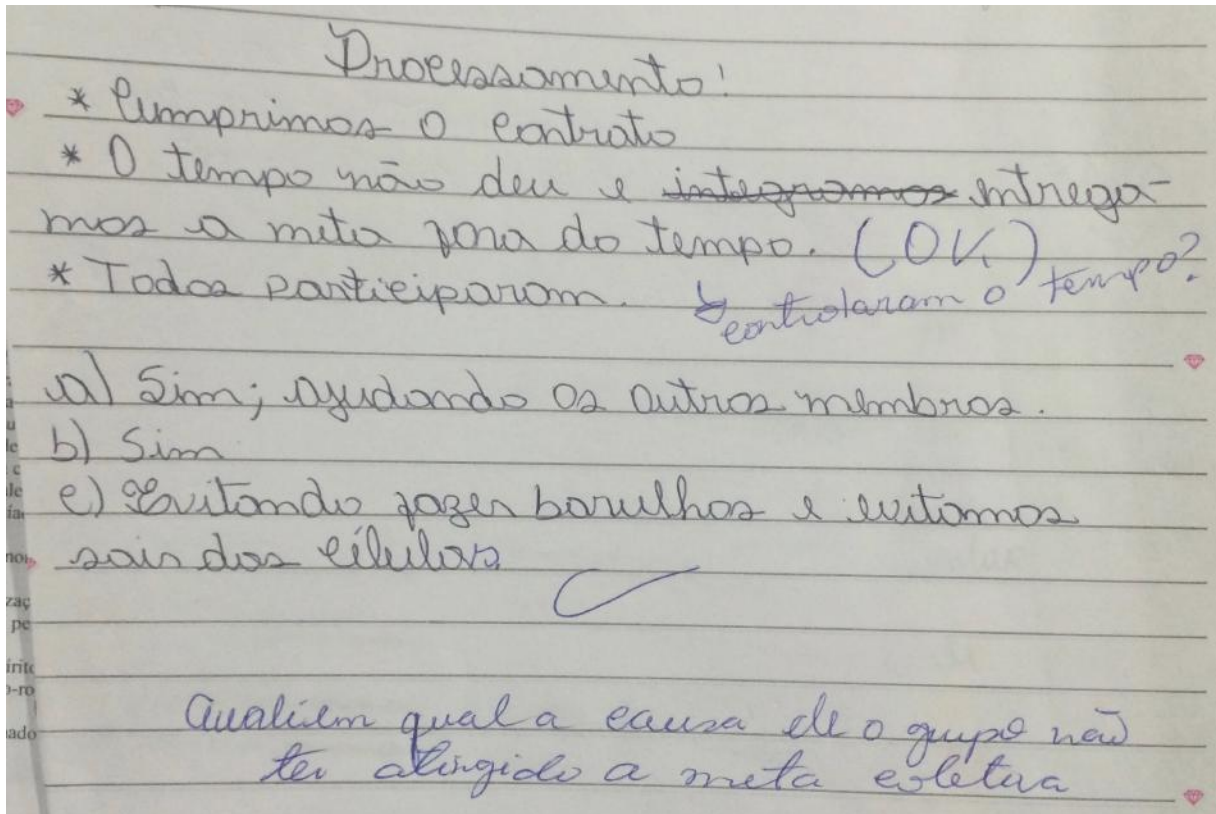 Processamento!
* Cumprimos o contrato
* O tempo não deu e integramos entrega-
mos a meta fora do tempo. (OK)
* Todos participaram. ↳ controlaram o tempo?
a) Sim; ajudando os outros membros.
b) Sim
c) Evitando fazer barulhos e evitamos
sair das células
Avaliem qual a causa de o grupo não
ter atingido a meta coletiva